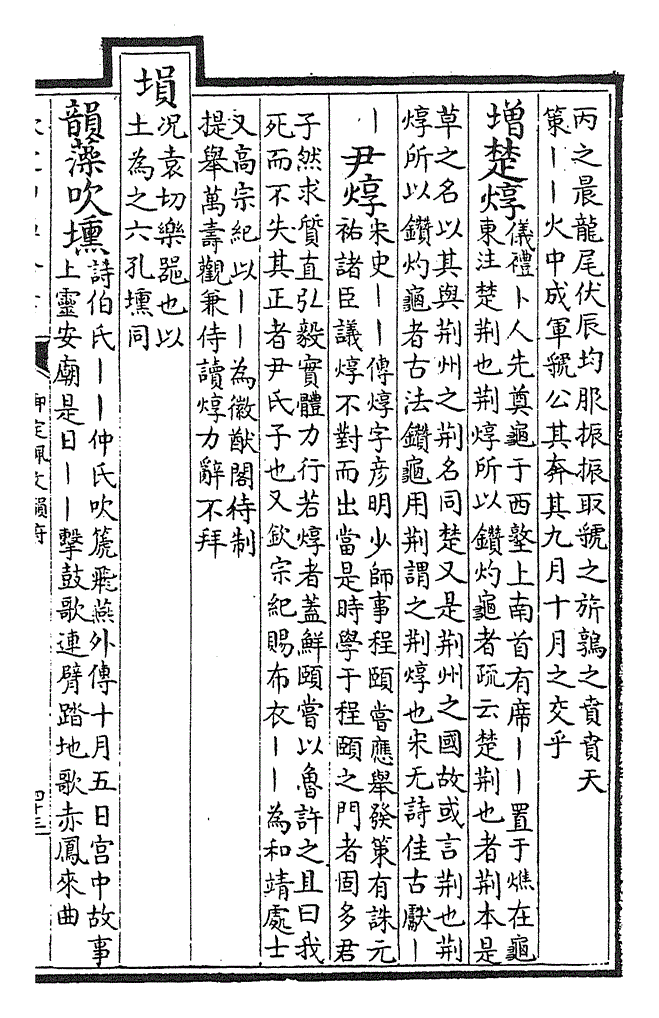 丙之晨龍尾伏辰均服振振取虢之旂鶉之賁賁天
策丨丨火中成軍虢公其奔其九月十月之交乎
增楚焞儀禮卜人先奠龜于西塾上南首有席丨丨置于燋在龜
東注楚荆也荆焞所以鑽灼龜者疏云楚荆也者荆本是
草之名以其與荆州之荆名同楚又是荆州之國故或言荆也荆
焞所以鑽灼龜者古法鑽龜用荆謂之荆焞也宋无詩佳古厭丨
丨尹焞宋史丨丨傳焞字彦明少師事程頤嘗應舉發策有誅元
祐諸臣議焞不對而出當是時學于程頤之門者固多君
子然求質直弘毅實體力行若焞者蓋鮮頤嘗以魯許之且曰我
死而不失其正者尹氏子也又欽宗紀賜布衣丨丨為和靖處士
又高宗紀以丨丨為徽猷閣待制
提舉萬壽觀兼侍讀焞力辭不拜
塤況袁切樂器也以
土為之六孔壎同
韻藻吹壎詩伯氏丨丨仲氏吹篪飛燕外傳十月五日宫中故事
上靈安廟是日丨丨擊鼓歌連臂踏地歌赤鳳來曲
御定佩文韻府
四十三